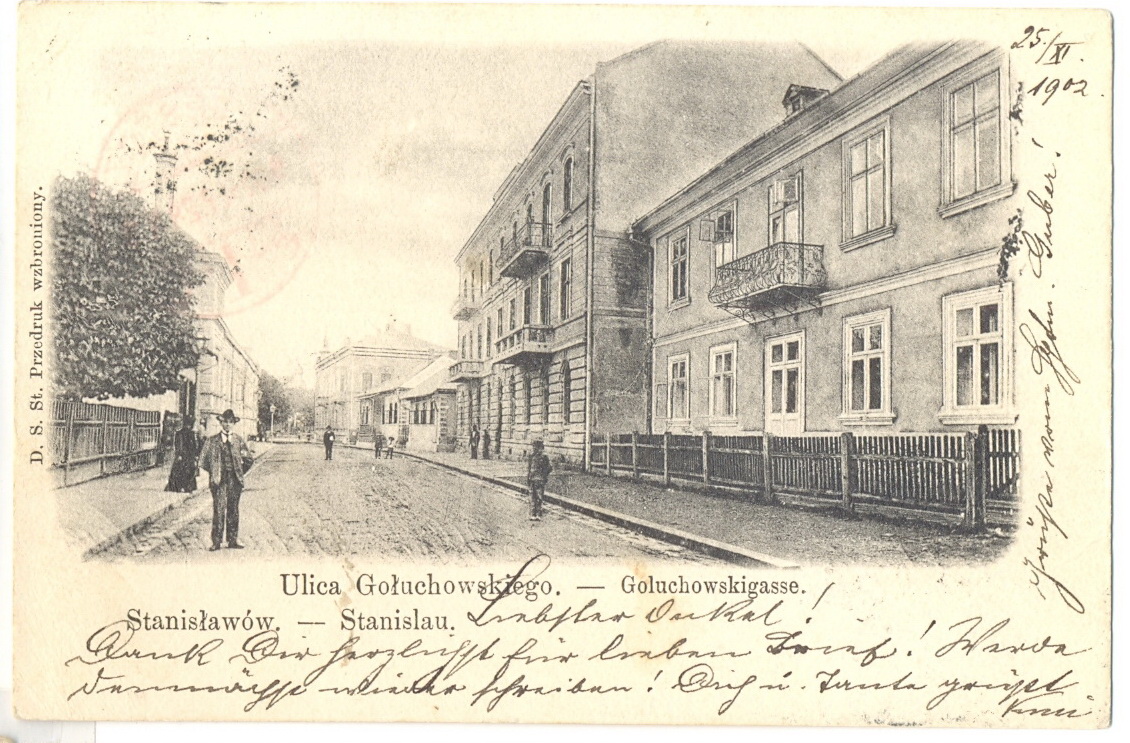 25/XI.
1902.
D. S. St. Przedruk wzbroniony.
Ulica Gołuchowskiego. — Goluchowskigasse.
Stanisławów. — Stanislau.
Liebster Onkel!
Dank Dir herzlichst für lieben Brief! Werde
demnächst wieder schreiben! Dich u. Tante grüßt
Grüße vom